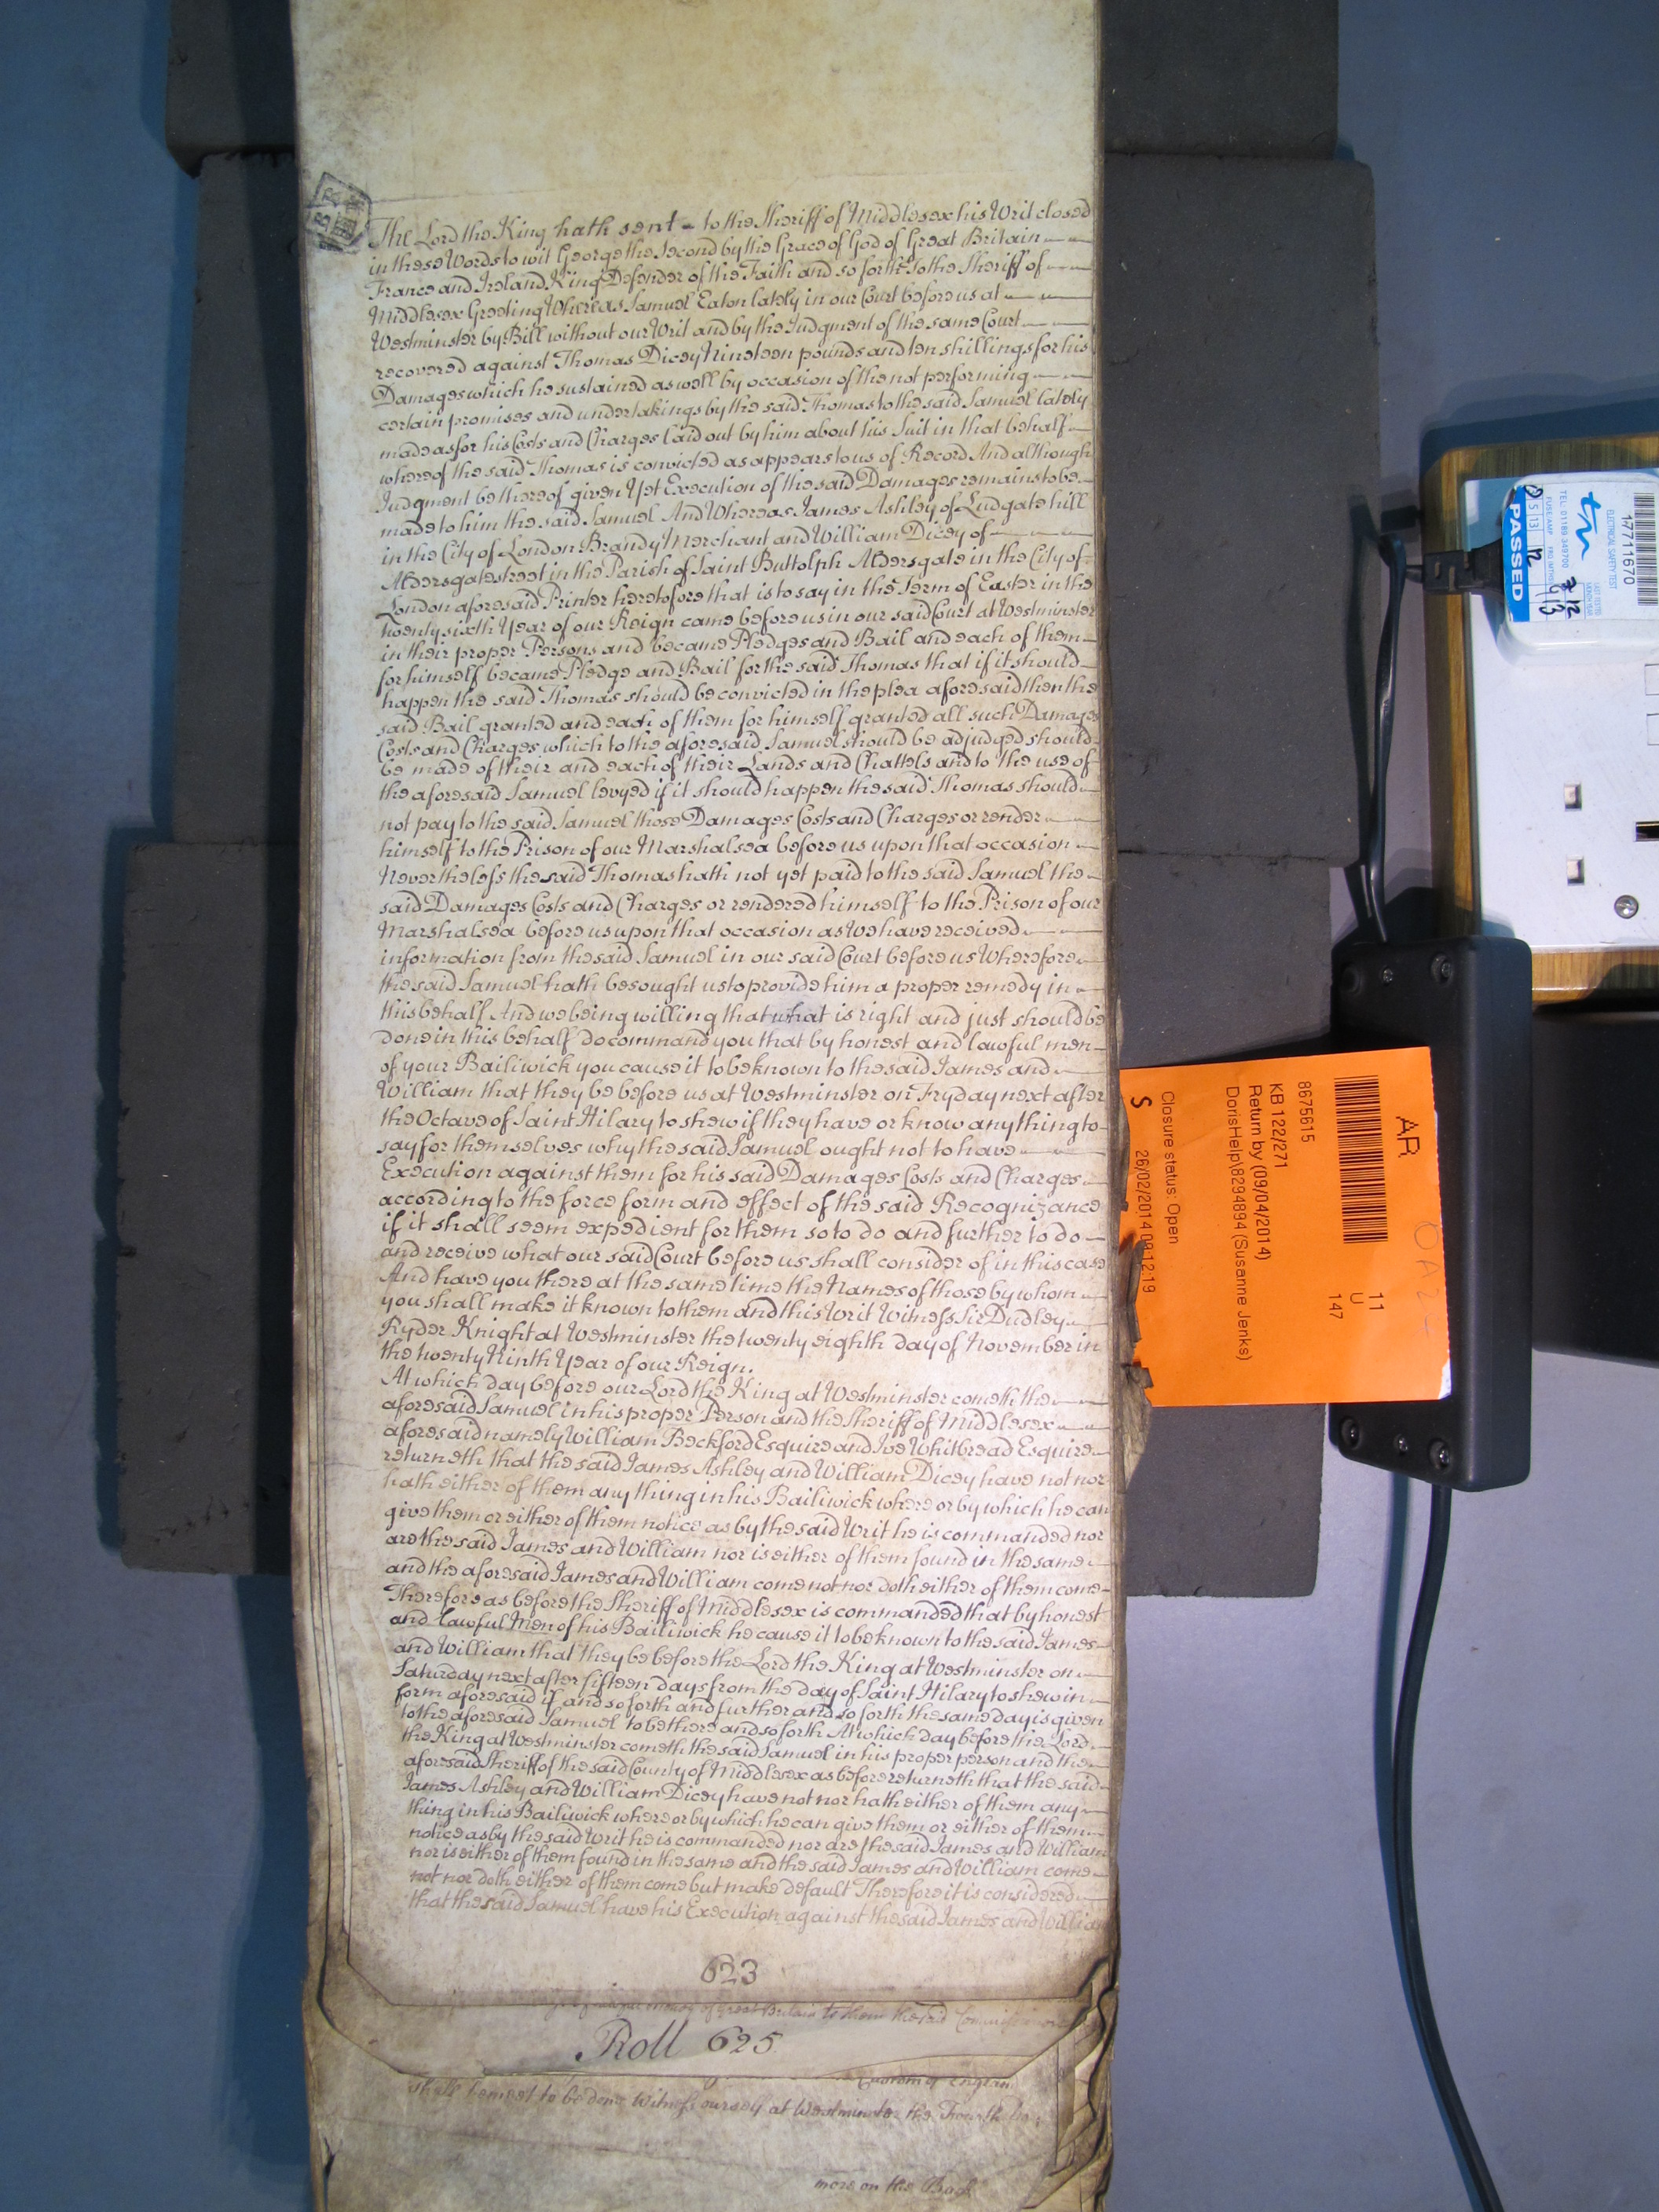 The Lord the King hath sent to the Sheriff of Middlesex his Writ closed
in these Words to wit George the Second by the Grace of God of Great Britain
France and Ireland King Defender of the Faith and so forth To the Sheriff of
Middlesex Greeting Whereas Samuel Eaton lately in our Court before us at
Westminster by Bill without our Writ and by the Judgment of the same Court
recovered against Thomas Dicey Nineteen pounds and ten shillings for his
Damages which he sustained as well by occasion of the not performing
certain promises and undertakings by the said Thomas to the said Samuel lately
made as for his Costs and Charges laid out by him about his Suit in that behalf
whereof the said Thomas is convicted as appears to us of Record And although
Judgment be thereof given Yet Execution of the said Damages remains to be
made to him the said Samuel And Whereas James Ashley of Ludgate hill
in the City of London Brandy Merchant and William Dicey of
Aldersgate street in the Parish of Saint Buttolph Aldersgate in the City of
London aforesaid Printer heretofore that is to say in the Term of Easter in the
Twenty sixth Year of our Reign came before us in our said Court at Westminster
in their proper Persons and became Pledges and Bail and each of them
for himself became Pledge and Bail for the said Thomas that if it should
happen the said Thomas should be convicted in the plea aforesaid then the
said Bail granted and each of them for himself granted all such Damages
Costs and Charges which to the aforesaid Samuel should be adjudged should
be made of their and each of their Lands and Chattels and to the use of
the aforesaid Samuel levyed if it should happen the said Thomas should
not pay to the said Samuel those Damages Costs and Charges or render
himself to the Prison of our Marshalsea before us upon that occasion
Nevertheless the said Thomas hath not yet paid to the said Samuel the
said Damages Costs and Charges or rendered himself to the Prison of our
Marshalsea before us upon that occasion as We have received
information from the said Samuel in our said Court before us Wherefore
the said Samuel hath besought us to provide him a proper remedy in
this behalf And we being willing that what is right and just should be
done in this behalf do command you that by honest and lawful men
of your Bailiwick you cause it to be known to the said James and
William that they be before us at Westminster on Fryday next after
the Octave of Saint Hilary to shew if they have or know any thing to
say for themselves why the said Samuel ought not to have
Execution against them for his said Damages Costs and Charges
according to the force form and effect of the said Recognizance
if it shall seem expedient for them so to do and further to do
and receive what our said Court before us shall consider of in this case
And have you there at the same time the Names of those by whom
you shall make it known to them and this Writ Witness Sir Dudley
Ryder Knight at Westminster the twenty eighth day of November in
the twenty Ninth Year of our Reign.
At which day before our Lord the King at Westminster cometh the
aforesaid Samuel in his proper Person and the Sheriff of Middlesex
aforesaid namely William Beckford Esquire and Ive Whitbread Esquire
returneth that the said James Ashley and William Dicey have not nor
hath either of them any thing in his Bailiwick where or by which he can
give them or either of them notice as by the said Writ he is commanded nor
are the said James and William nor is either of them found in the same
and the aforesaid James and William come not nor doth either of them come
Therefore as before the Sheriff of Middlesex is commanded that by honest
and lawful Men of his Bailiwick he cause it to be known to the said James
and William that they be before the Lord the King at Westminster on
Saturday next after fifteen days from the day of Saint Hilary to shew in
form aforesaid if and so forth and further and so forth the same day is given
to the aforesaid Samuel to be there and so forth At which day before the Lord
the King at Westminster cometh the said Samuel in his proper person and the
aforesaid Sheriff of the said County of Middlesex as before returneth that the said
James Ashley and William Dicey have not nor hath either of them any
thing in his Bailiwick where or by which he can give them or either of them
notice as by the said Writ he is commanded nor are the said James and William
nor is either of them found in the same and the said James and William come
not nor doth either of them come but make default Therefore it is considered
that the said Samuel have his Execution against the said James and William
623
of Great Britain to them the said
Roll 625
Custom of
shall be meet to be done Witness ourself at Westminster the
more on the Back
AR
11
U
147
8675615
KB 122/271
Return by (09/04/2014)
DorisHelp\8294894 (Susanne Jenks)
Closure status: Open
S
26/02/2014 09:12:19
17711670
ELECTRICAL SAFETY TEST
TEL: 01189 349700
PASSED